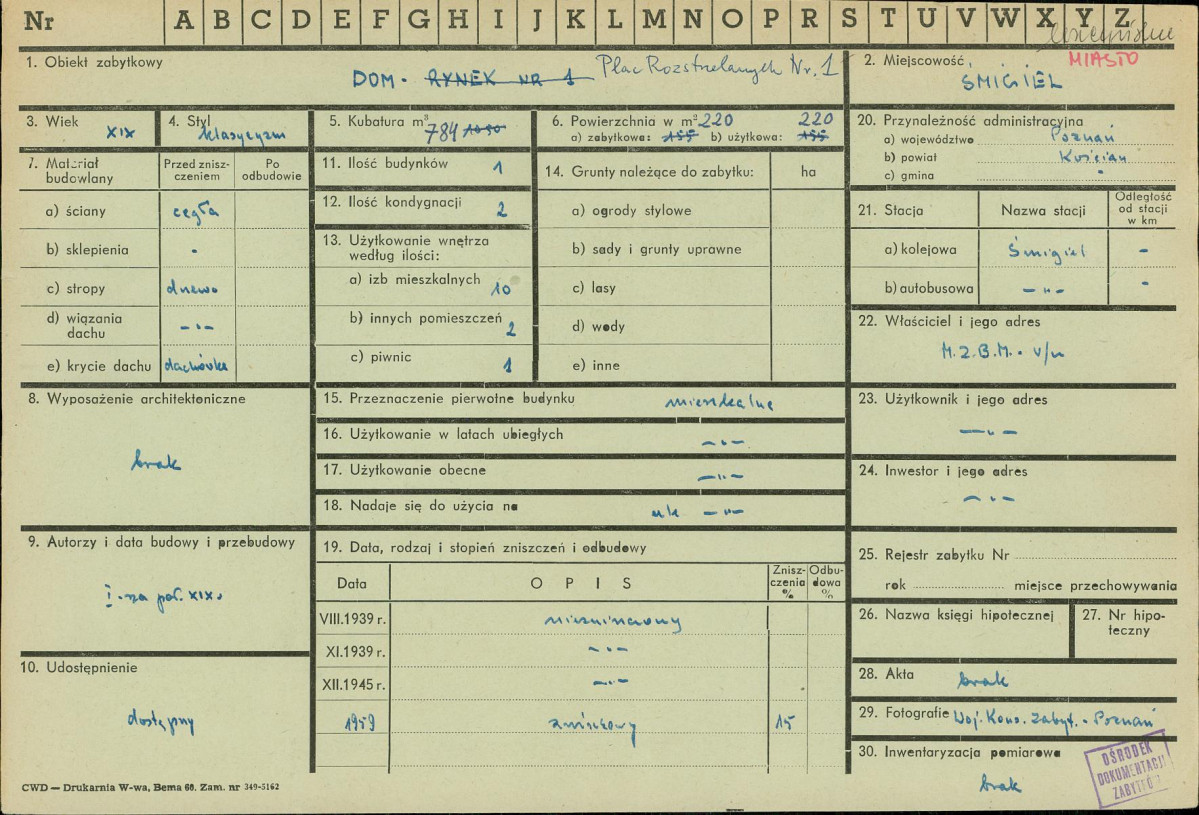 Nr A B C D E F G H I J K L M N O P R S T U V W X Y Z
MIASTO
1. Obiekt zabytkowy
DOM - RYNEK NR 1 Plac Rozstrzelanych Nr. 1
2. Miejscowość
ŚMIGIEL
3. Wiek XIX
4. Styl klasycyzm
5. Kubatura m³ 784 1050
6. Powierzchnia w m² 220 220
a) zabytkowa: 155 b) użytkowa: 155
20. Przynależność administracyjna
a) województwo Poznań
b) powiat Kościan
c) gmina -
7. Materiał budowlany
Przed zniszczeniem
Po odbudowie
a) ściany cegła
b) sklepienia -
c) stropy drewno
d) wiązania dachu -"-
e) krycie dachu dachówka
11. Ilość budynków 1
12. Ilość kondygnacji 2
13. Użytkowanie wnętrza według ilości:
a) izb mieszkalnych 10
b) innych pomieszczeń 2
c) piwnic 1
14. Grunty należące do zabytku: ha
a) ogrody stylowe
b) sady i grunty uprawne
c) lasy
d) wody
e) inne
21. Stacja Nazwa stacji Odległość od stacji w km
a) kolejowa Śmigiel -
b) autobusowa -"- -
22. Właściciel i jego adres
M.Z.B.M. - w/m
8. Wyposażenie architektoniczne
brak
15. Przeznaczenie pierwotne budynku mieszkalne
16. Użytkowanie w latach ubiegłych -"-
17. Użytkowanie obecne -"-
18. Nadaje się do użycia na -"-
23. Użytkownik i jego adres
-"-
24. Inwestor i jego adres
-"-
9. Autorzy i data budowy i przebudowy
I-sza poł. XIX w
19. Data, rodzaj i stopień zniszczeń i odbudowy
Data O P I S Zniszczenia % Odbudowa %
VIII.1939 r.
XI.1939 r. -"-
XII.1945 r. -"-
1959 15
25. Rejestr zabytku Nr
rok miejsce przechowywania
26. Nazwa księgi hipotecznej
27. Nr hipoteczny
10. Udostępnienie
dostępny
28. Akta brak
29. Fotografie Woj. Kons. Zabyt. - Poznań
30. Inwentaryzacja pomiarowa
brak
OŚRODEK
DOKUMENTACJI
ZABYTKÓW
CWD — Drukarnia W-wa, Bema 60. Zam. nr 349-5162